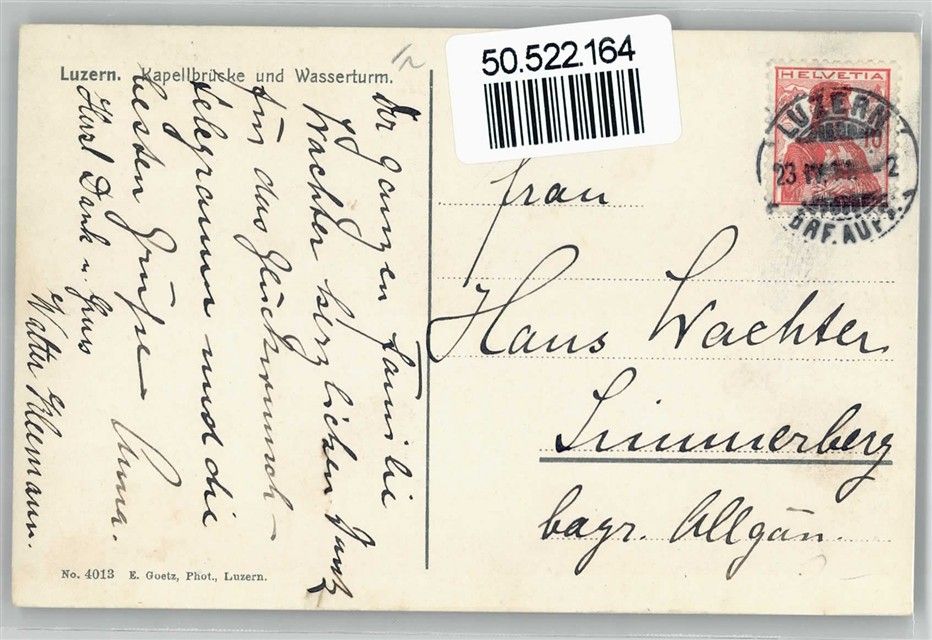 Luzern. Kapellbrücke und Wasserturm.
50.522.164
HELVETIA
10
LUZERN
23
2
BRF. AUFG.
Der ganzen Familie
Wachter herzlichen Dank
für das Glückwunsch-
telegramm und die
besten Grüße
Anna.
Herzl Dank u. Gruss
Walter Kleemann.
Frau
Hans Wachter
Simmerberg
bayr. Allgäu.
No. 4013 E. Goetz, Phot., Luzern.